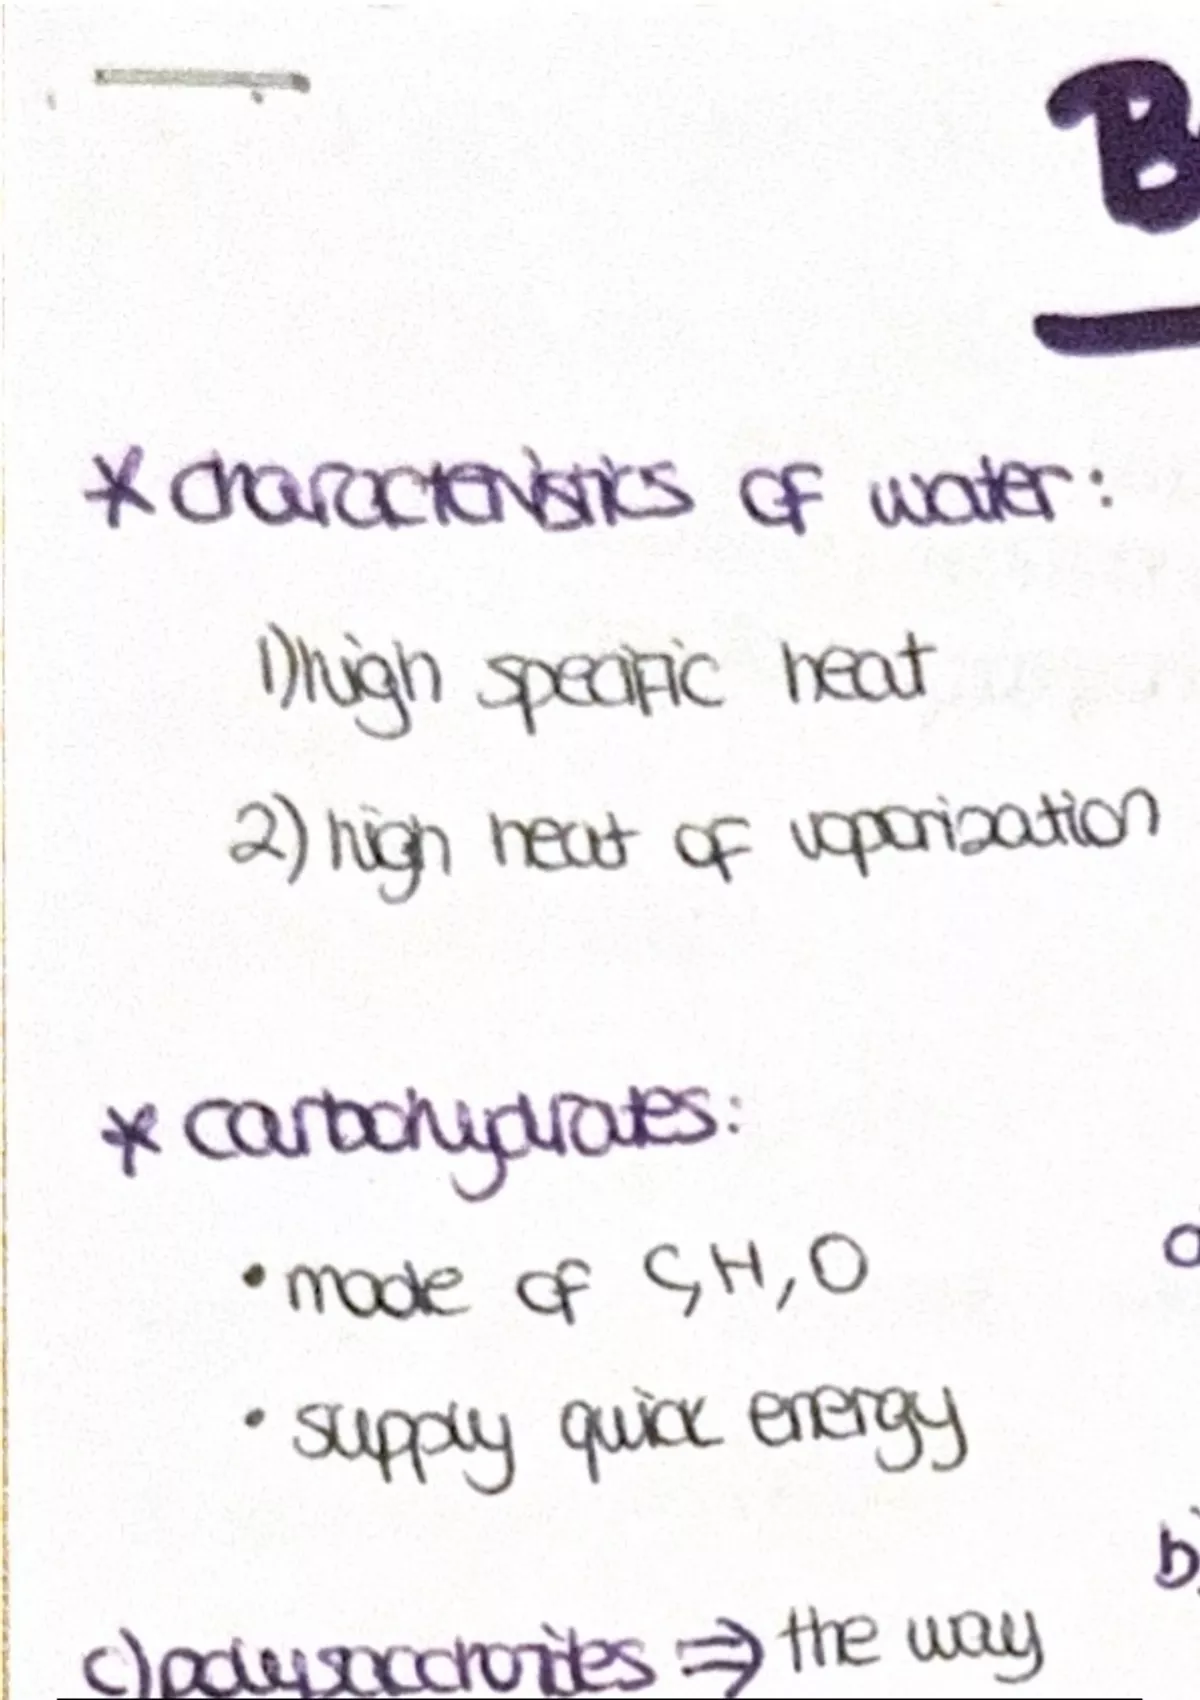 B
* characteristics of water:
1) high specific heat
2) high heat of vaporization
* carbohydrates:
• made of C, H, O
a
• supply quick energy
b)
c) polysaccharides ⇒ the way